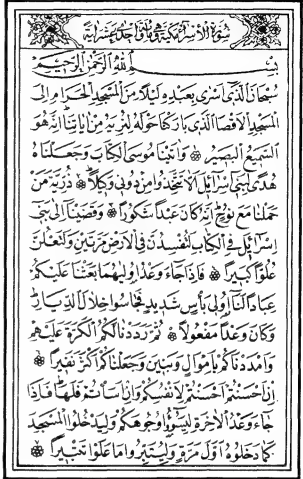 سُورَةُ الْاِسْرَاءِ مَكِّيَّةٌ وَهِيَ مِائَةٌ وَاِحْدٰى عَشَرَ اٰيَةً
بِسْمِ اللّٰهِ الرَّحْمٰنِ الرَّحِيمِ
سُبْحَانَ الَّذِى اَسْرٰى بِعَبْدِهِ لَيْلًا مِنَ الْمَسْجِدِ الْحَرَامِ اِلَى
الْمَسْجِدِ الْاَقْصَا الَّذِى بَارَكْنَا حَوْلَهُ لِنُرِيَهُ مِنْ اٰيَاتِنَا اِنَّهُ هُوَ
السَّمِيعُ الْبَصِيرُ ۞ وَاٰتَيْنَا مُوسَى الْكِتَابَ وَجَعَلْنَاهُ
هُدًى لِبَنِى اِسْرَائِلَ اَلَّا تَتَّخِذُوا مِنْ دُونِى وَكِيلًا ۞ ذُرِّيَّةَ مَنْ
حَمَلْنَا مَعَ نُوحٍ اِنَّهُ كَانَ عَبْدًا شَكُورًا ۞ وَقَضَيْنَا اِلٰى بَنِى
اِسْرَائِلَ فِى الْكِتَابِ لَتُفْسِدُنَّ فِى الْاَرْضِ مَرَّتَيْنِ وَلَتَعْلُنَّ
عُلُوًّا كَبِيرًا ۞ فَاِذَا جَاءَ وَعْدُ اُولٰيهُمَا بَعَثْنَا عَلَيْكُمْ
عِبَادًا لَنَا اُولِى بَأْسٍ شَدِيدٍ فَجَاسُوا خِلَالَ الدِّيَارِ
وَكَانَ وَعْدًا مَفْعُولًا ۞ ثُمَّ رَدَدْنَا لَكُمُ الْكَرَّةَ عَلَيْهِمْ
وَاَمْدَدْنَاكُمْ بِاَمْوَالٍ وَبَنِينَ وَجَعَلْنَاكُمْ اَكْثَرَ نَفِيرًا ۞
اِنْ اَحْسَنْتُمْ اَحْسَنْتُمْ لِاَنْفُسِكُمْ وَاِنْ اَسَأْتُمْ فَلَهَا فَاِذَا
جَاءَ وَعْدُ الْاٰخِرَةِ لِيَسُوؤُا وُجُوهَكُمْ وَلِيَدْخُلُوا الْمَسْجِدَ
كَمَا دَخَلُوهُ اَوَّلَ مَرَّةٍ وَلِيُتَبِّرُوا مَا عَلَوْا تَتْبِيرًا ۞